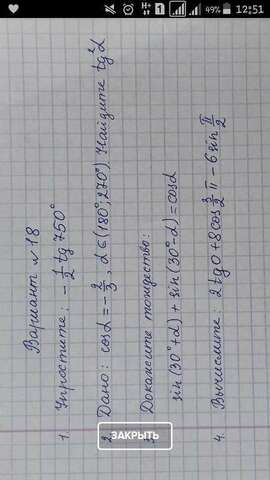 49% 12:51
Вариант №18
1. Упростите: -1/2 tg 750°
2. Дано: cosα = -2/3, α∈(180°; 270°) Найдите tg²α
Докажите тождество:
sin(30°+α) + sin(30°-α) = cosα
4. Вычислите: 2tg0 + 8cos 3/2 π - 6sin π/2
ЗАКРЫТЬ